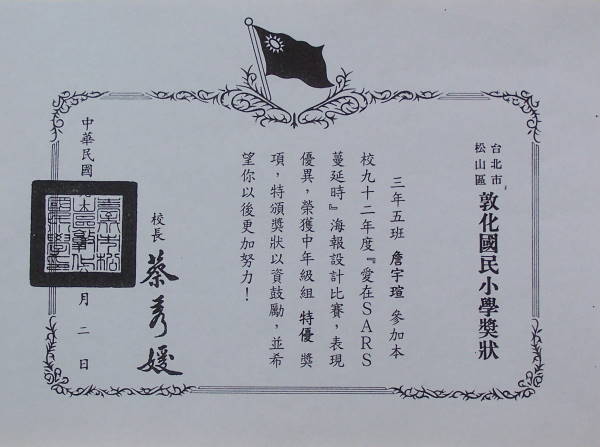 台北市
松山區
敦化國民小學獎狀
三年五班 詹宇瑄 參加本
校九十二年度『愛在SARS
蔓延時』海報設計比賽，表現
優異，榮獲中年級組 特優 獎
項，特頒獎狀以資鼓勵，並希
望你以後更加努力！
校長 蔡秀媛
中華民國
月二日